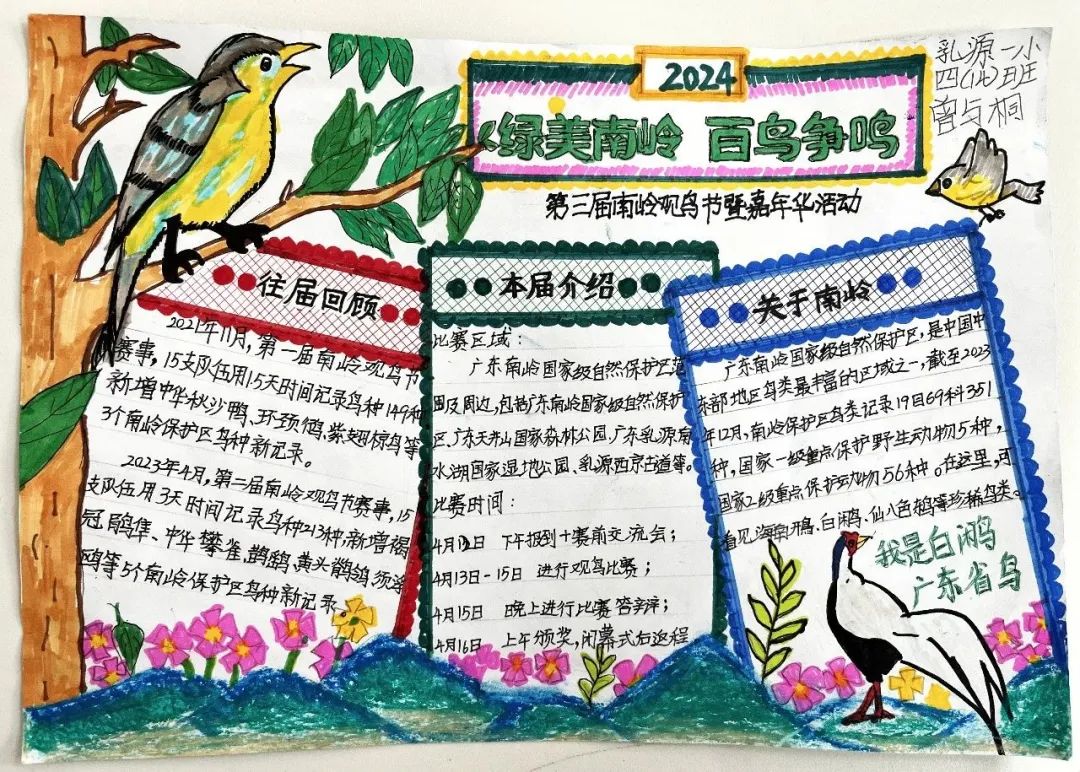 2024
绿美南岭 百鸟争鸣
第三届南岭观鸟节暨嘉年华活动
乳源一小
四(北)班
曾与桐
往届回顾
2021年11月,第一届南岭观鸟节
赛事,15支队伍用15天时间记录鸟种149种
新增中华秋沙鸭、环颈鸻、紫翅椋鸟等
3个南岭保护区鸟种新记录。
2023年4月,第二届南岭观鸟节赛事,15
支队伍用3天时间记录鸟种213种,新增褐
冠鹃隼、中华攀雀、鹊鹞、黄头鹡鸰、须浮
鸥等5个南岭保护区鸟种新记录。
本届介绍
比赛区域:
广东南岭国家级自然保护区范
围及周边,包括广东南岭国家级自然保护
区、广东天井山国家森林公园、广东乳源南
水湖国家湿地公园、乳源西京古道等。
比赛时间:
4月12日 下午报到+赛前交流会;
4月13日-15日 进行观鸟比赛;
4月15日 晚上进行比赛答辩;
4月16日 上午颁奖,闭幕式后返程
关于南岭
广东南岭国家级自然保护区,是中国中
东部地区鸟类最丰富的区域之一,截至2023
年12月,南岭保护区鸟类记录19目69科351
种,国家一级重点保护野生动物5种,
国家2级重点保护动物56种。在这里,可
看见海南鳽、白鹇、仙八色鸫等珍稀鸟类。
我是白鹇
广东省鸟